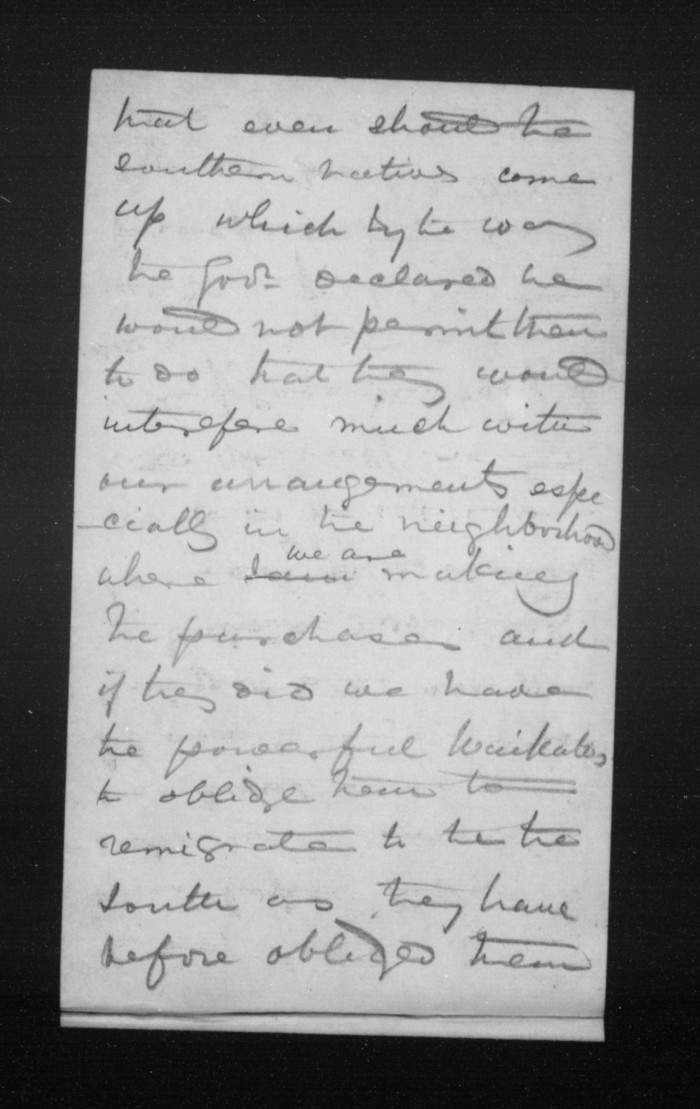 that even should the
southern natives come
up which by the way
the Govr. declared he
would not permit them
to do that they would
interefere much with
our arrangements espe
-cially in the neighborhood
where I am we are making
the purchases and
if they did we have
the powerful Waikatos
to oblidge them to
remigrate to the the
south as they have
before oblidged them